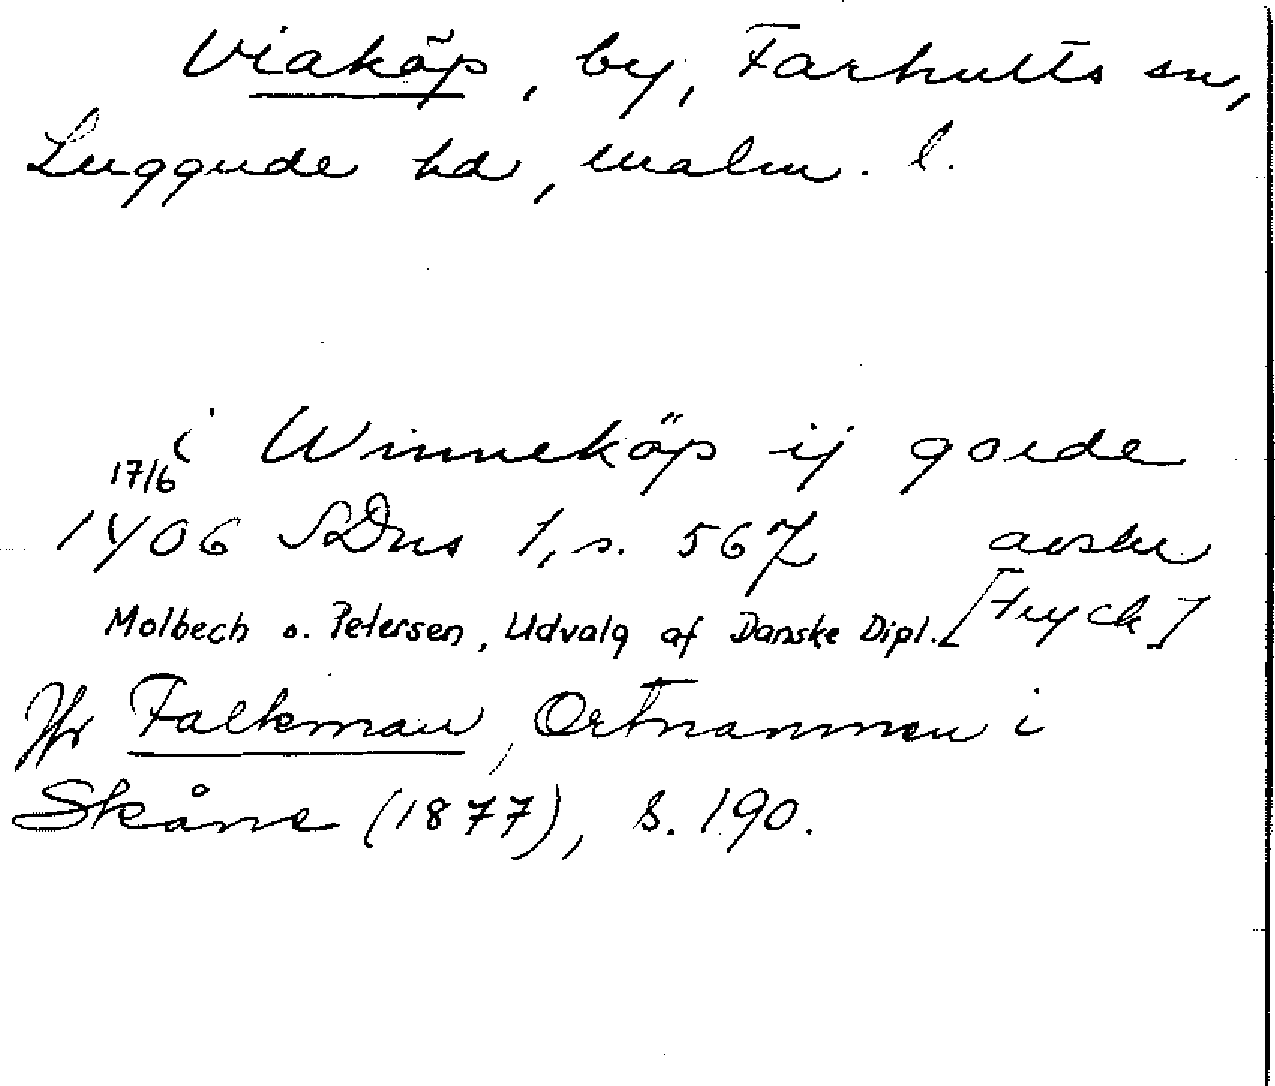 Viaköp, by, Farhults sn,
Luggude hd, malm. l.
i Winneköp ij gorde
17/6
1406 SDns 1, s. 567 avskr
Molbech o. Petersen, Udvalg af Danske Dipl. [tryck]
Jfr Falkman, Ortnamnen i
Skåne (1877), s. 190.